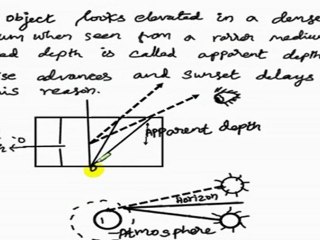 object looks elevated in a dense
um when seen from a rarer medium
ed depth is called apparent depth
se advances and sunset delays
his reason.
Apparent depth
Horizon
Atmosphere